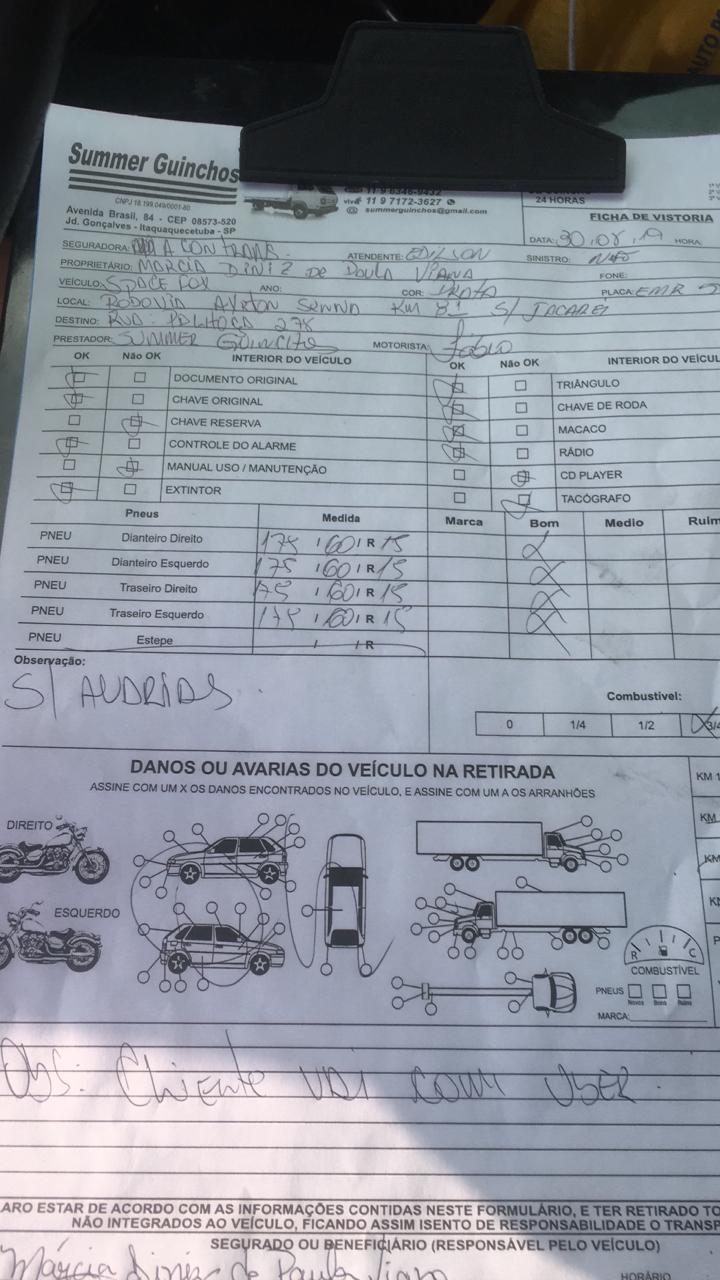 AUTO
Summer Guinchos
CNPJ 18.199.049/0001-80
Avenida Brasil, 84 - CEP 08573-520
Jd. Gonçalves - Itaquaquecetuba - SP
vivo 11 9 7172-3627
@ summerguinchos@gmail.com
24 HORAS
FICHA DE VISTORIA
DATA: 30, 08, 19 HORA:
SEGURADORA: A CONTRANS. ATENDENTE: EDILSON SINISTRO:
PROPRIETÁRIO: MARCIA DINIZ DE PAULA VIANA FONE:
VEÍCULO: SPACE FOX ANO: COR: PRATA PLACA: EMR
LOCAL: RODOVIA AYRTON SENNA KM 81 S/ JACAREÍ
DESTINO: RUA: PALHOÇA 278
PRESTADOR: SUMMER GUINCHO MOTORISTA: Fábio
OK Não OK INTERIOR DO VEÍCULO OK Não OK INTERIOR DO VEÍCU
DOCUMENTO ORIGINAL TRIÂNGULO
CHAVE ORIGINAL CHAVE DE RODA
CHAVE RESERVA MACACO
CONTROLE DO ALARME RÁDIO
MANUAL USO / MANUTENÇÃO CD PLAYER
EXTINTOR TACÓGRAFO
Pneus Medida Marca Bom Medio Ruim
PNEU Dianteiro Direito 175 / 60 / R 15
PNEU Dianteiro Esquerdo 175 / 60 / R 15
PNEU Traseiro Direito 175 / 60 / R 15
PNEU Traseiro Esquerdo 175 / 60 / R 15
PNEU Estepe / / R
Observação:
S/ AVARIAS.
Combustivel:
0 1/4 1/2 3/4
DANOS OU AVARIAS DO VEÍCULO NA RETIRADA
ASSINE COM UM X OS DANOS ENCONTRADOS NO VEÍCULO, E ASSINE COM UM A OS ARRANHÕES
KM 1
KM
KM
DIREITO
ESQUERDO
R C
COMBUSTÍVEL
PNEUS
Novos Bons Ruins
MARCA:
Obs: Cliente vai com UBER.
ARO ESTAR DE ACORDO COM AS INFORMAÇÕES CONTIDAS NESTE FORMULÁRIO, E TER RETIRADO TO
NÃO INTEGRADOS AO VEÍCULO, FICANDO ASSIM ISENTO DE RESPONSABILIDADE O TRANSP
SEGURADO OU BENEFICIÁRIO (RESPONSÁVEL PELO VEÍCULO)
Márcia Diniz de Paula Viana
HORÁRIO